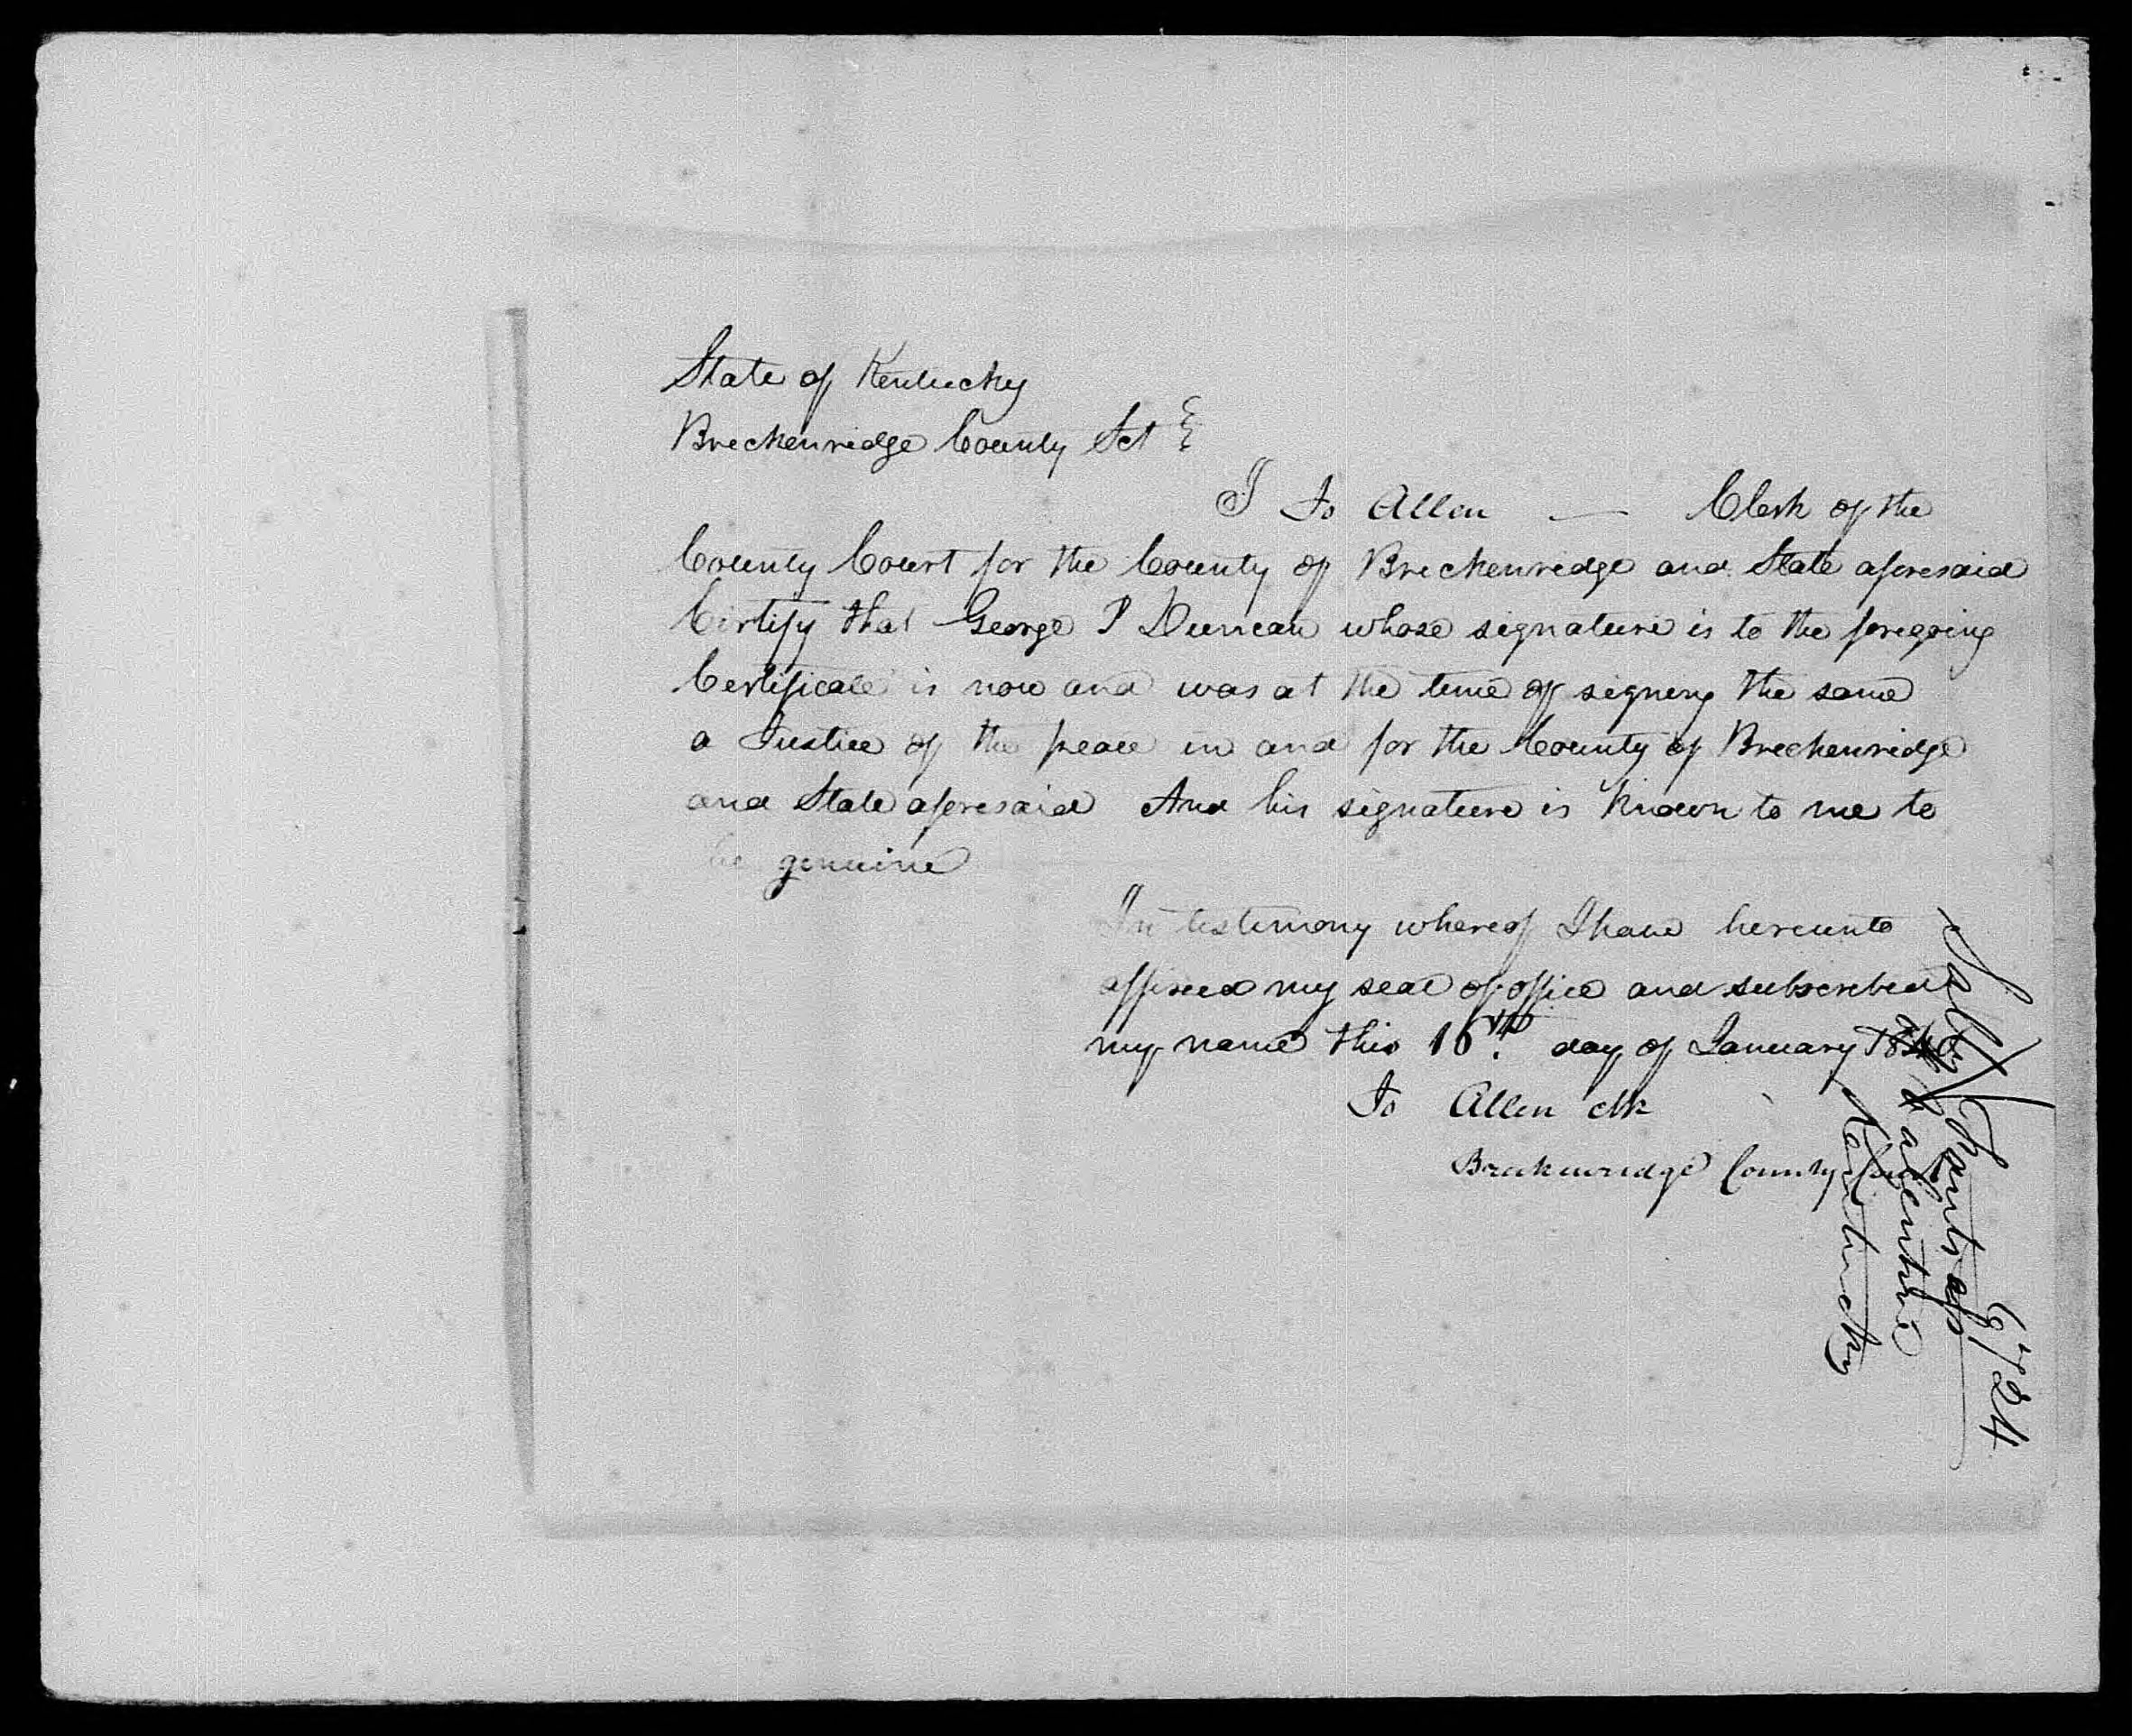 State of Kentucky
Breckenridge County Sct
I Jo Allen — Clerk of the
County Court for the County of Breckenridge and State aforesaid
Certify that George P Duncan whose signature is to the foregoing
Certificate is now and was at the time of signing the same
a Justice of the peace in and for the County of Breckenridge
and State aforesaid And his signature is known to me to
be genuine
In testimony whereof I have hereunto
affixed my seal of office and subscribed
my name this 16th day of January
Jo Allen clk
Breckenridge County
6724
Kentucky